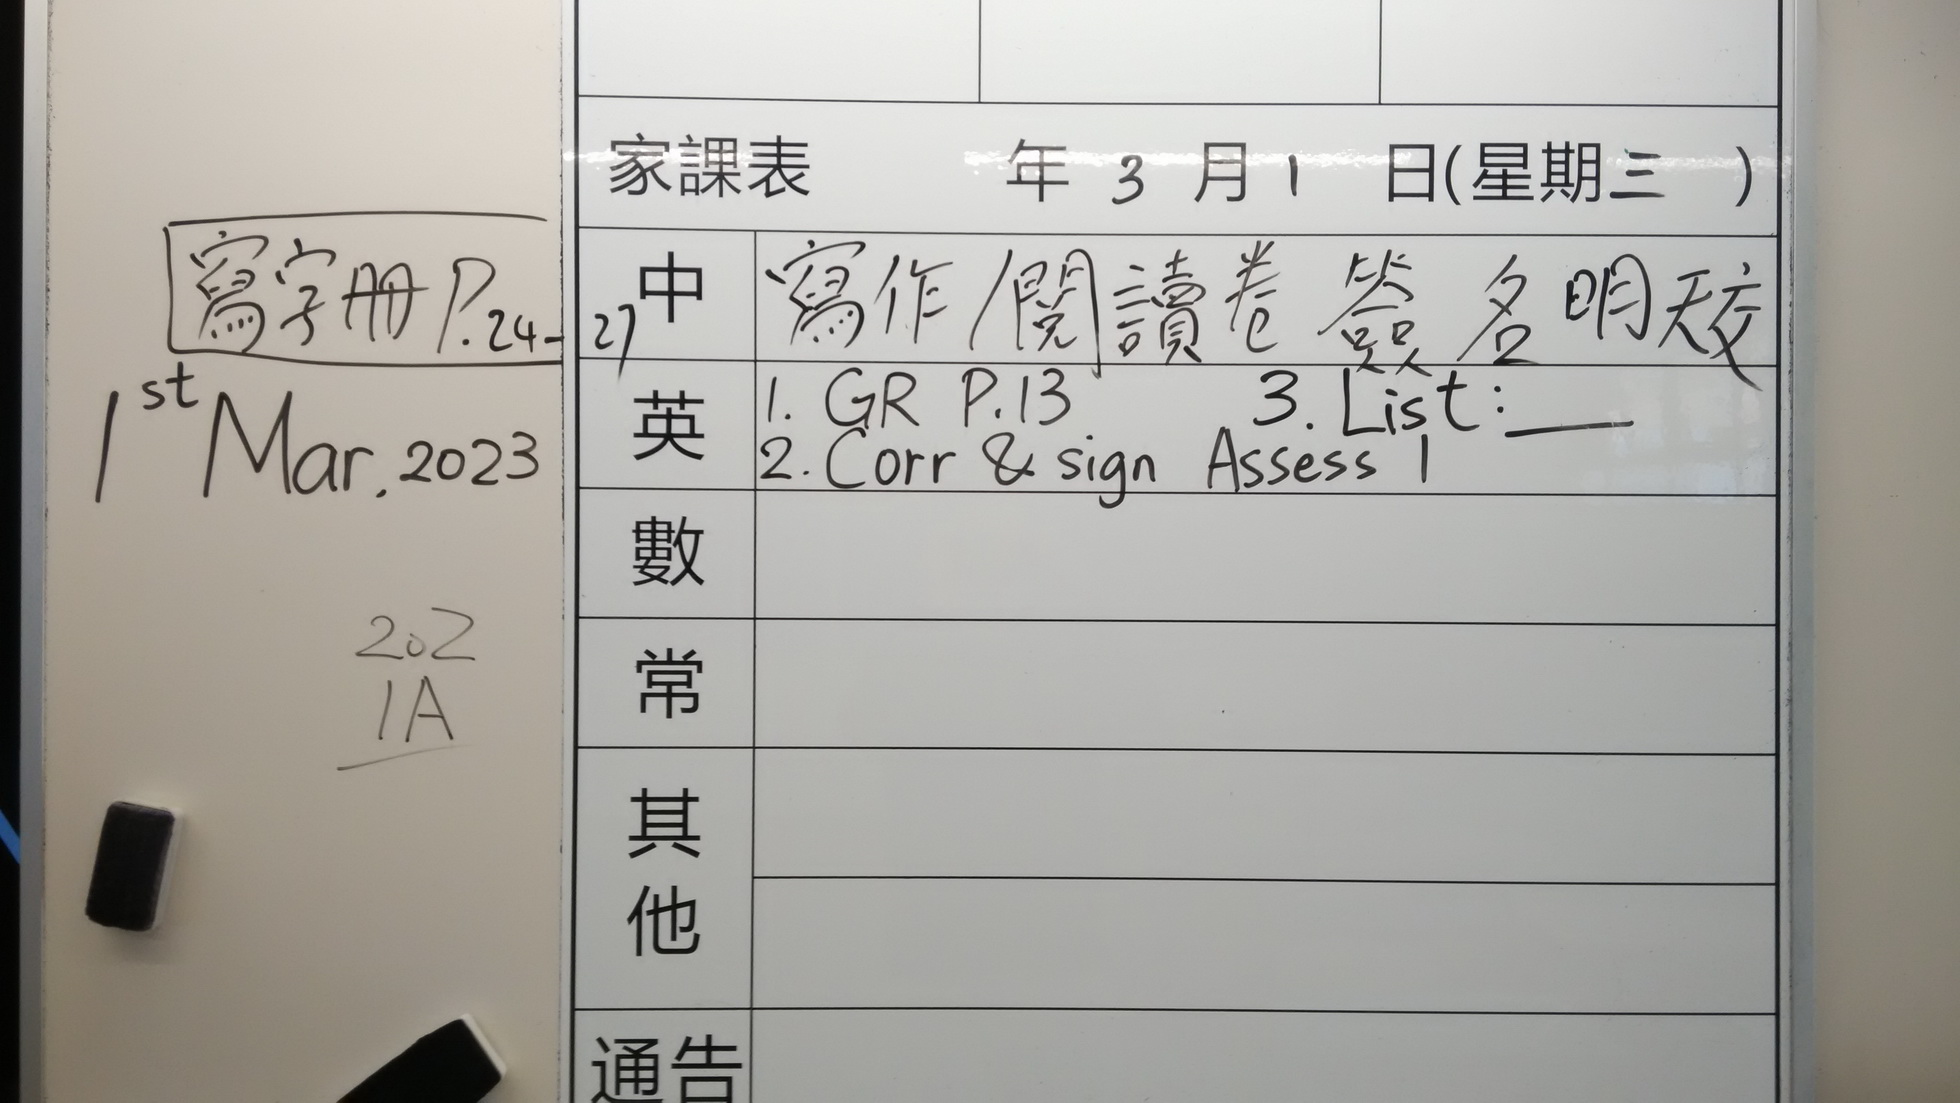 家課表 年 3 月 1 日(星期三 )
寫字冊 P.24-27
中 寫作/閱讀卷 簽名明天交
1st Mar. 2023
英 1. GR P.13 3. List: ___
2. Corr & sign Assess 1
數
202
1A
常
其他
通告